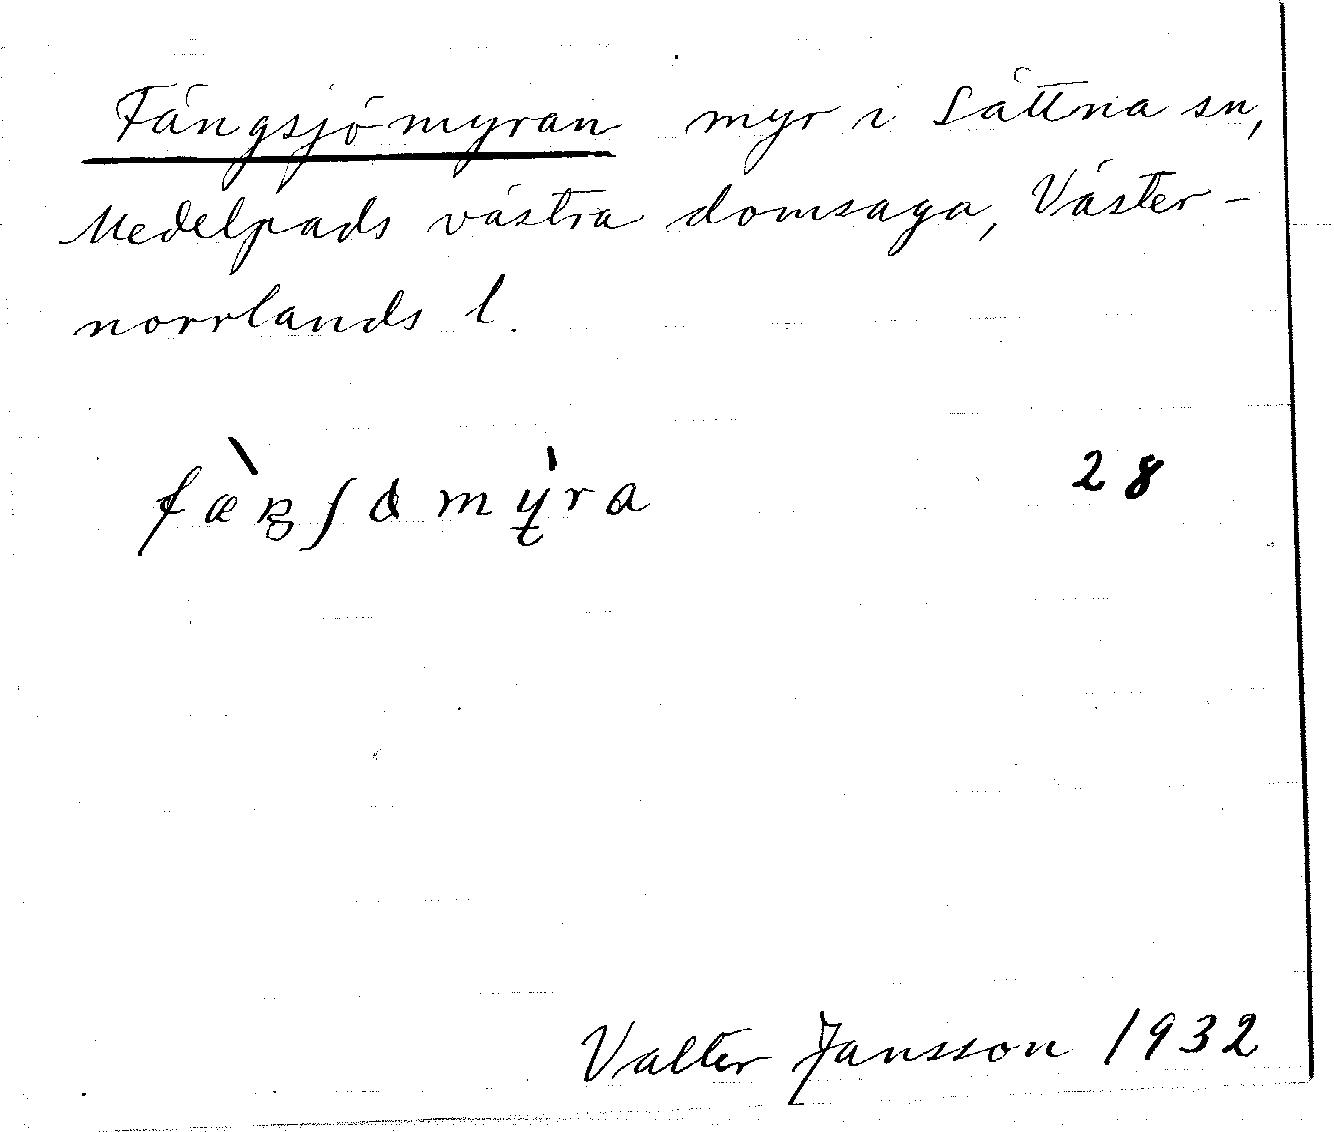 Fängsjömyran myr i Sättna sn,
Medelpads västra domsaga, Väster-
norrlands l.
28
Valter Jansson 1932